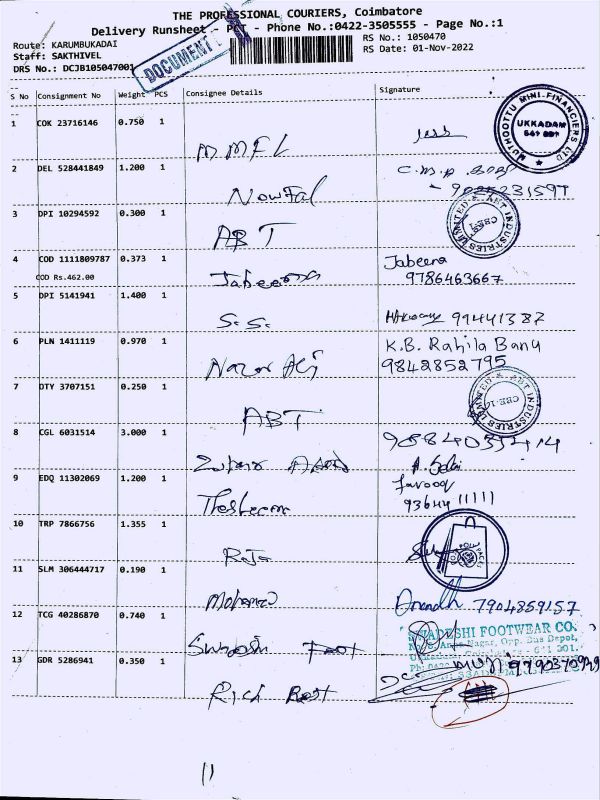 THE PROFESSIONAL COURIERS, Coimbatore
Delivery Runsheet - PCT - Phone No.:0422-3505555 - Page No.:1
Route: KARUMBUKADAI
RS No.: 1050470
Staff: SAKTHIVEL
RS Date: 01-Nov-2022
DRS No.: DCJB105047001
DOCUMENT
S No Consignment No Weight PCS Consignee Details Signature
1 COK 23716146 0.750 1
MUTHOOTTU MINI-FINANCIERS LTD
UKKADAM
641 001
MMFL
2 DEL 528441849 1.200 1
C.M.A
Nowfal
3 DPI 10294592 0.300 1
LIMITED ABT INDUSTRIES
ABT
4 COD 1111809787 0.373 1
Jabeena
COD Rs.462.00
9786463667
Jabeena
5 DPI 5141941 1.400 1
S.S.
99441387
6 PLN 1411119 0.970 1
K.B. Rahila Banu
9842852795
Nazar Ali
7 DTY 3707151 0.250 1
LIMITED ABT INDUSTRIES
ABT
8 CGL 6031514 3.000 1
9 EDQ 11302069 1.200 1
farooq
9364411111
10 TRP 7866756 1.355 1
Raja
11 SLM 306444717 0.190 1
Mohamed
Anandh 7904859157
12 TCG 40286870 0.740 1
FOOTWEAR CO.
Nagar, Opp. Bus Depot,
Foot
13 GDR 5286941 0.350 1
Rich